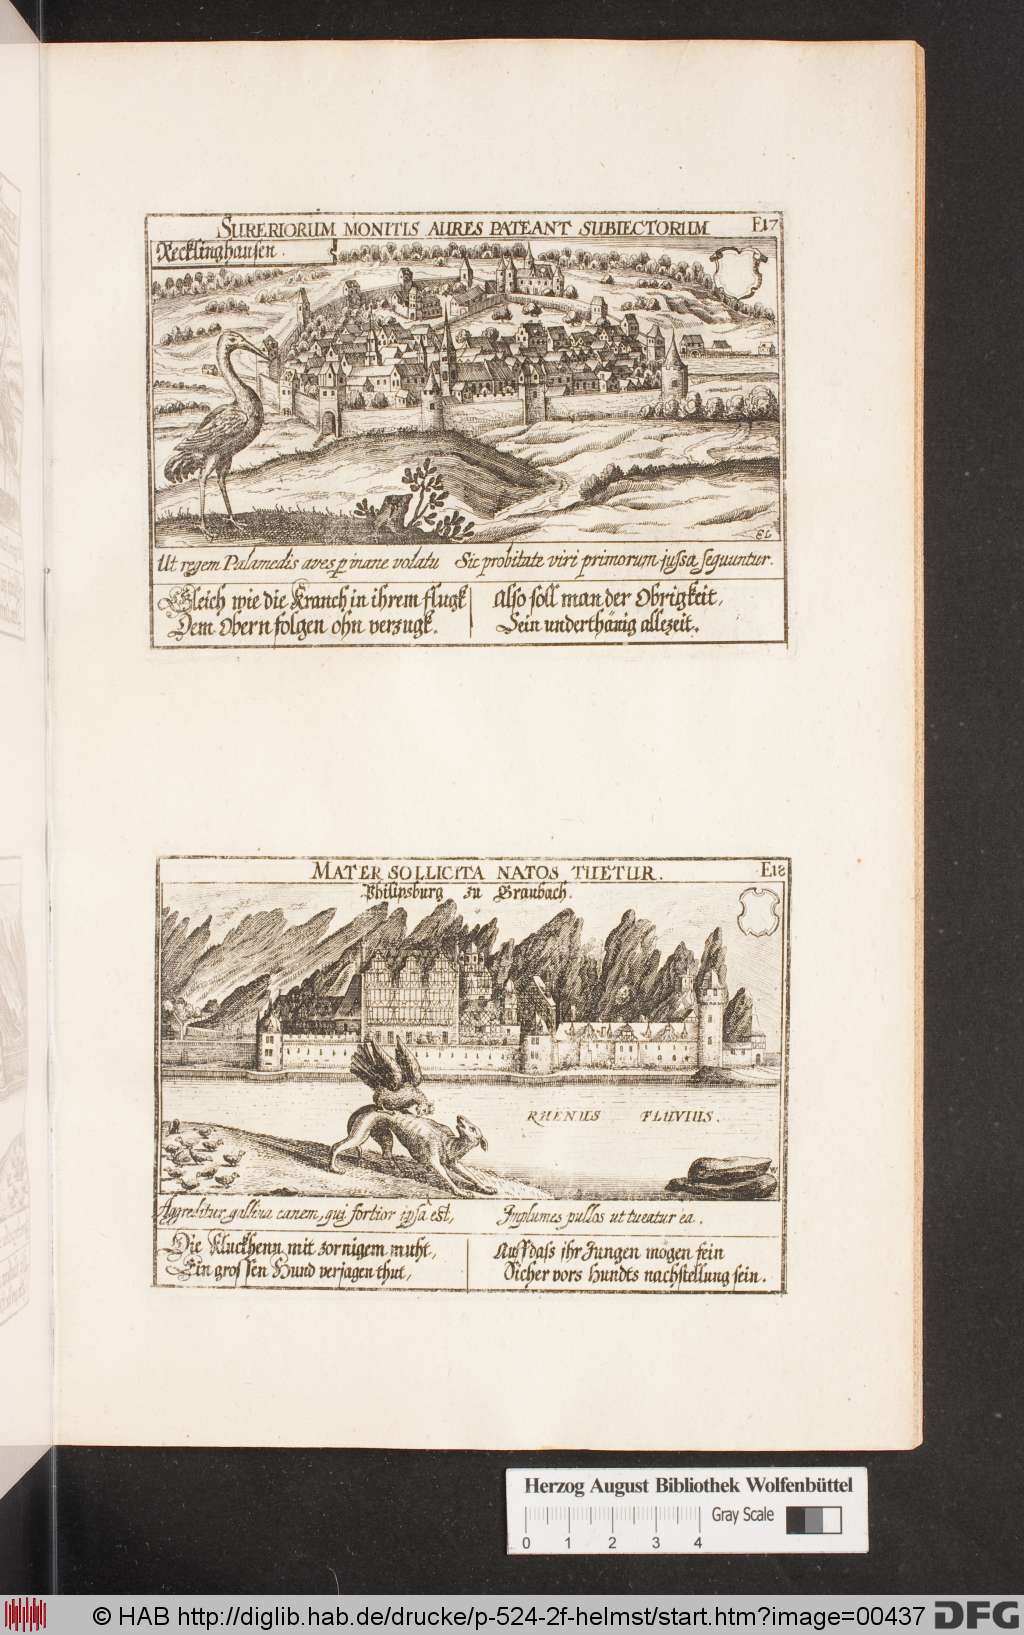 SUPERIORUM MONITIS AURES PATEANT SUBIECTORUM
E17
Recklinghausen.
EL
Ut regem Palamedis aves p inane volatu Sic probitate viri primorum jussa sequuntur.
Gleich wie die Kranch in ihrem flugk
Dem Obern folgen ohn verzugk.
Also soll man der Obrigkeit,
Sein underthänig allezeit.
MATER SOLLICITA NATOS TUETUR.
E18
Philipsburg zu Braubach.
RHENUS FLUVIUS.
Aggreditur gallina canem, qui fortior ipsa est,
Implumes pullos ut tueatur ea.
Die Kluckhenn mit zornigem muht,
Ein grossen Hund verjagen thut,
Auffdass ihr Jungen mögen fein
Sicher vors Hundts nachstellung sein.
Herzog August Bibliothek Wolfenbüttel
Gray Scale
0 1 2 3 4
© HAB http://diglib.hab.de/drucke/p-524-2f-helmst/start.htm?image=00437
DFG